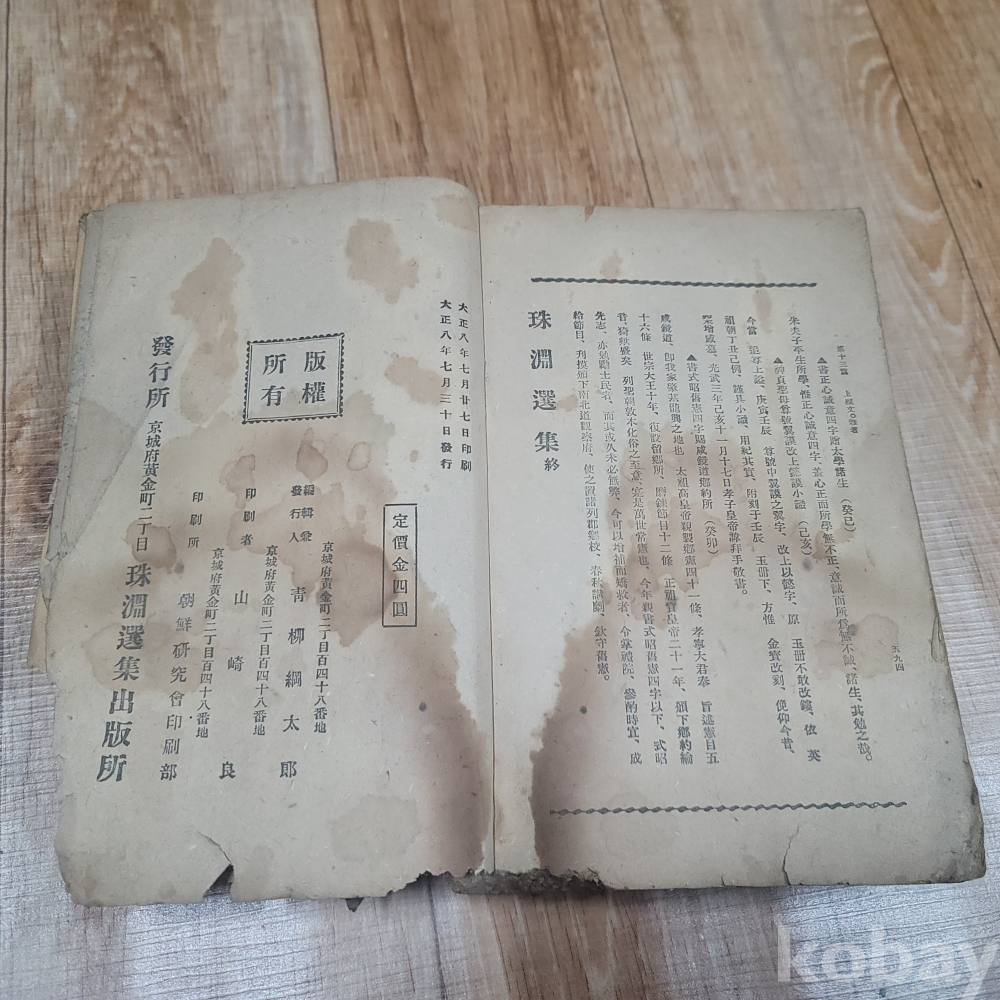 第十二篇
五九四
朱夫子平生所學、惟正心誠意四字、蓋心正而所學無不正、意誠而所爲無不誠、諸生、其勉之哉。
▲書正心誠意四字賜太學諸生 (癸巳)
今當 追尊上謚、庚寅壬辰 尊號中翼謨之翼字、改上以懿字、原 玉册不敢改鐫、依 英
▲神貞聖母尊號翼謨改上懿謨小識 (己亥)
祖朝丁丑已例、謹具小識、用紀其實、附刻于壬辰 玉册下、方惟 金寶改刻、俛仰今昔、
增感慕、光武三年己亥十一月十七日孝子皇帝 拜手敬書。
▲書式昭舊憲四字賜咸鏡道鄉約所 (癸卯)
咸鏡道、卽我家肇基龍興之地也 太祖高皇帝親製鄉憲四十一條、孝寧大君奉 旨述憲目五
十六條 世宗大王十年、復設留鄉所、磨鍊節目十二條 正祖宣皇帝二十一年、頒下鄉約綸
音、猗歟盛矣 列聖朝敦本化俗之至意、寔是萬世當憲也、今年親書式昭舊憲四字以下、式昭
先志、亦勉勵士民者、而其或久未必無弊、今可以增補而矯救者、令掌禮院、參酌時宜、成
給節目、刋摸頒下南北道觀察府、使之置諸列郡鄉校、春秋講閱、欽守舊憲。
珠淵選集 終
大正八年七月廿七日印刷
大正八年七月三十日發行
定價金四圓
版權
所有
京城府黃金町二丁目百四十八番地
編輯兼
發行人 靑柳綱太郎
京城府黃金町二丁目百四十八番地
印刷者 山崎良
京城府黃金町二丁目百四十八番地
印刷所 朝鮮研究會印刷部
發行所 京城府黃金町二丁目 珠淵選集出版所
kobay